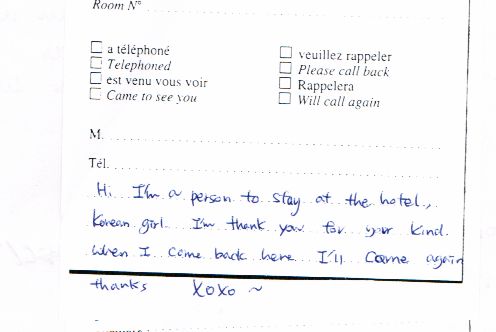 Room N°
☐ a téléphoné
☐ Telephoned
☐ est venu vous voir
☐ Came to see you
☐ veuillez rappeler
☐ Please call back
☐ Rappelera
☐ Will call again
M.
Tél.
Hi I'm a person to stay at the hotel,
Korean girl I'm thank you for your kind.
When I come back here I'll come again
thanks XOXO ~